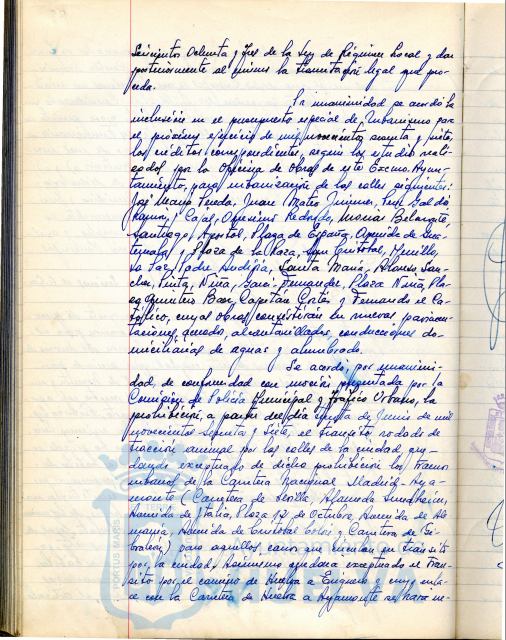 Seiscientos Ochenta y Tres de la Ley de Régimen Local y dar
posteriormente al mismo la tramitación legal que pro-
ceda.
Por unanimidad se acordó la
inclusión en el presupuesto especial de Urbanismo para
el próximo ejercicio de mil novecientos sesenta y siete,
los créditos correspondientes, según los estudios reali-
zados por la Oficina de Obras de este Excmo. Ayun-
tamiento, para urbanización de las calles siguientes:
José María Pereda, Juan Mateo Jiménez, Pérez Galdós
Ramón y Cajal, Onésimo Redondo,
Santiago Apóstol, Plaza de España, Avenida de Gua-
temala, Plaza de la Rosa, San Cristóbal, Murillo,
La Paz, Padre Andivia, Santa María, Alonso Sán-
chez, Pinta, Niña, Plaza Niña, Pla-
za Quintero Baez, Capitán Cortés y Fernando el Ca-
tólico, cuyas obras consistirán en nuevas pavimen-
taciones, acerado, alcantarillados, conducciones do-
miciliarias de aguas y alumbrado.
Se acordó, por unanimi-
dad, de conformidad con moción presentada por la
Comisión de Policía Municipal y Tráfico Urbano, la
prohibición, a partir del día de de mil
novecientos sesenta y siete, el tránsito rodado de
tracción animal por las calles de la ciudad, que-
dando exceptuado de dicha prohibición los tramos
urbanos de la Carretera Nacional Madrid-Aya-
monte (Carretera de Sevilla, Alameda Sundheim,
Avenida de Italia, Plaza 12 de Octubre, Avenida de Ale-
mania, Avenida de Cristóbal Colón y Carretera de Gi-
braleón) para aquellos carros que circulan en tránsito
por la ciudad. Asimismo quedará exceptuado el trán-
sito por el camino de Huelva a y cuyo enla-
ce con la Carretera de Huelva a Ayamonte se hará me-
PORTUS MARIS